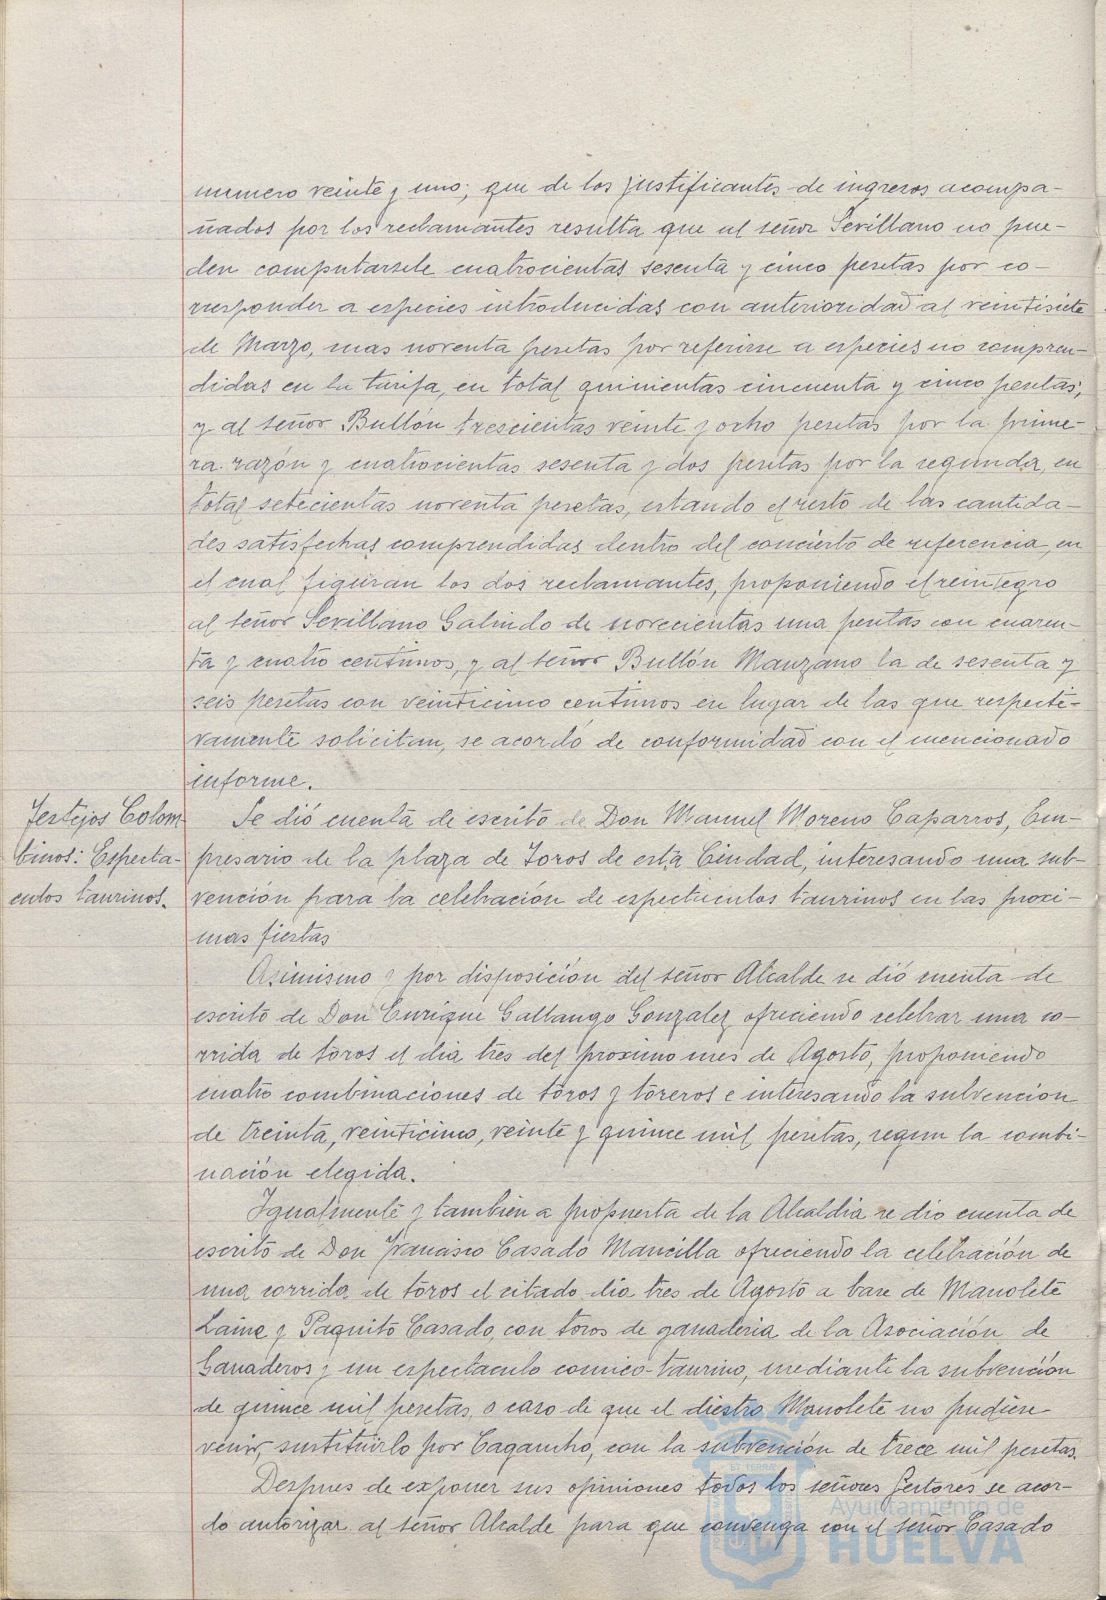 numero veinte y uno; que de los justificantes de ingresos acompa-
ñados por los reclamantes resulta que al señor Sevillano no pue-
den computarsele cuatrocientas sesenta y cinco pesetas por co-
rresponder a especies introducidas con anterioridad al veintisiete
de Marzo, mas noventa pesetas por referirse a especies no compren-
didas en la tarifa, en total quinientas cincuenta y cinco pesetas;
y al señor Bullón trescientas veinte y ocho pesetas por la prime-
ra razón y cuatrocientas sesenta y dos pesetas por la segunda, en
total setecientas noventa pesetas, estando el resto de las cantida-
des satisfechas comprendidas dentro del concierto de referencia, en
el cual figuran los dos reclamantes, proponiendo el reintegro
al señor Sevillano Galindo de novecientas una pesetas con cuaren-
ta y cuatro centimos, y al señor Bullón Manzano la de sesenta y
seis pesetas con veinticinco centimos en lugar de las que respecti-
vamente solicitan, se acordó de conformidad con el mencionado
informe.
Festejos Colom-
binos: Especta-
culos taurinos.
Se dió cuenta de escrito de Don Manuel Moreno Caparros, Em-
presario de la plaza de Toros de esta Ciudad, interesando una sub-
vención para la celebración de espectaculos taurinos en las proxi-
mas fiestas
Asimismo y por disposición del señor Alcalde se dió cuenta de
escrito de Don Enrique Gallango Gonzalez ofreciendo celebrar una co-
rrida de toros el dia tres del proximo mes de Agosto, proponiendo
cuatro combinaciones de toros y toreros e interesando la subvención
de treinta, veinticinco, veinte y quince mil pesetas, segun la combi-
nación elegida.
Igualmente y tambien a propuesta de la Alcaldia se dio cuenta de
escrito de Don Francisco Casado Mancilla ofreciendo la celebración de
una corrida de toros el citado dia tres de Agosto a base de Manolete
Laine y Paquito Casado, con toros de ganaderia de la Asociación de
Ganaderos y un espectaculo comico-taurino, mediante la subvención
de quince mil pesetas, o caso de que el diestro Manolete no pudiese
venir, sustituirlo por Cagancho, con la subvención de trece mil pesetas.
Despues de exponer sus opiniones todos los señores Gestores se acor-
do autorizar al señor Alcalde para que convenga con el señor Casado
Ayuntamiento de
HUELVA